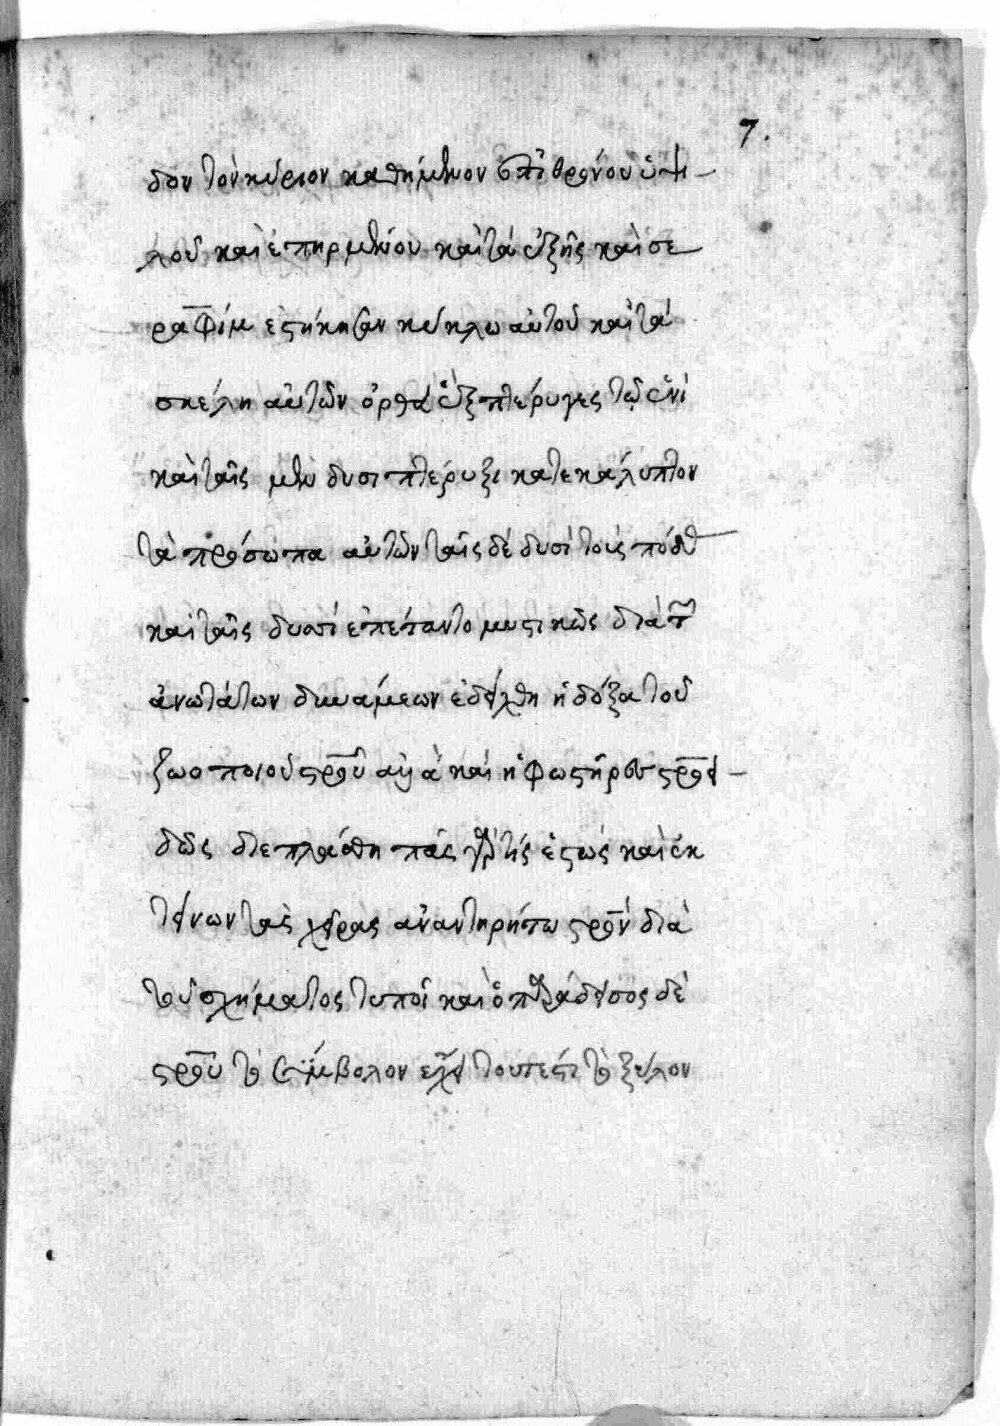 7.
δον τὸν κύριον καθήμενον ἐπὶ θρόνου ὑψη
λοῦ καὶ ἐπηρμένου καὶ τὰ ἑξῆς καὶ σε
ραφίμ ἑστήκησαν κύκλω αὐτοῦ καὶ τὰ
σκέλη αὐτῶν ὀρθὰ ἓξ πτέρυγες τῷ ἑνὶ
καὶ ταῖς μὲν δυσι πτέρυξι κατεκάλυπτον
τὰ πρόσωπα αὐτῶν ταῖς δὲ δυσὶ τοὺς πόδας
καὶ ταῖς δυσὶ ἐπέταντο μυστικῶς διὰ τῶν
ἀνωτάτων δυναμεων ἐδείχθη ἡ δόξα τοῦ
ζωοποιοῦ σταυροῦ καὶ σταυροει
δῶς διεπλάσθη πᾶς γάρ τίς ἑστὼς καὶ ἐκ
τείνων τὰς χεῖρας σταυρὸν διὰ
τοῦ σχήματος τυποῖ καὶ ὁ παράδεισος δὲ
σταυροῦ τὸ σύμβολον εἶχε τουτέστι τὸ ξύλον